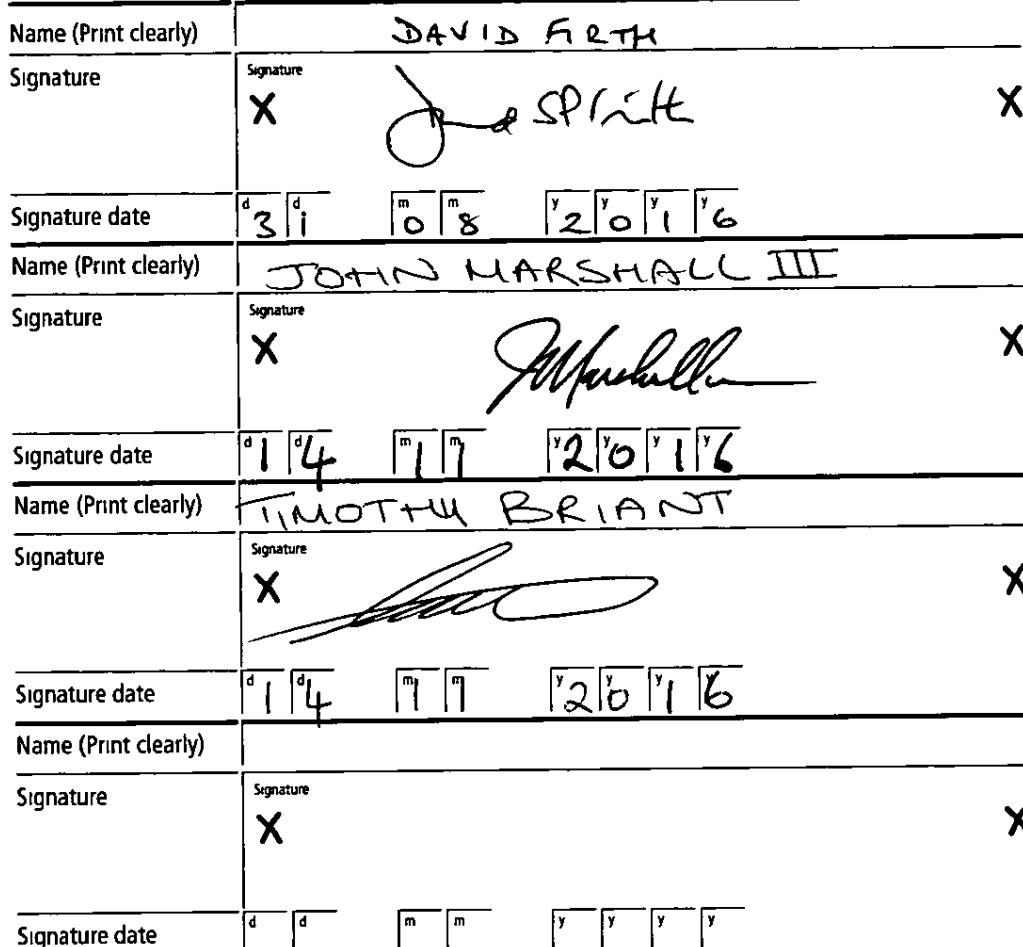 Name (Print clearly) DAVID FIRTH
Signature Signature
X X
Signature date d 3 d 1 m 0 m 8 y 2 y 0 y 1 y 6
Name (Print clearly) JOHN MARSHALL III
Signature Signature
X JMarshall X
Signature date d 1 d 4 m 1 m 1 y 2 y 0 y 1 y 6
Name (Print clearly) TIMOTHY BRIANT
Signature Signature
X X
Signature date d 1 d 4 m 1 m 1 y 2 y 0 y 1 y 6
Name (Print clearly)
Signature Signature
X X
Signature date d d m m y y y y